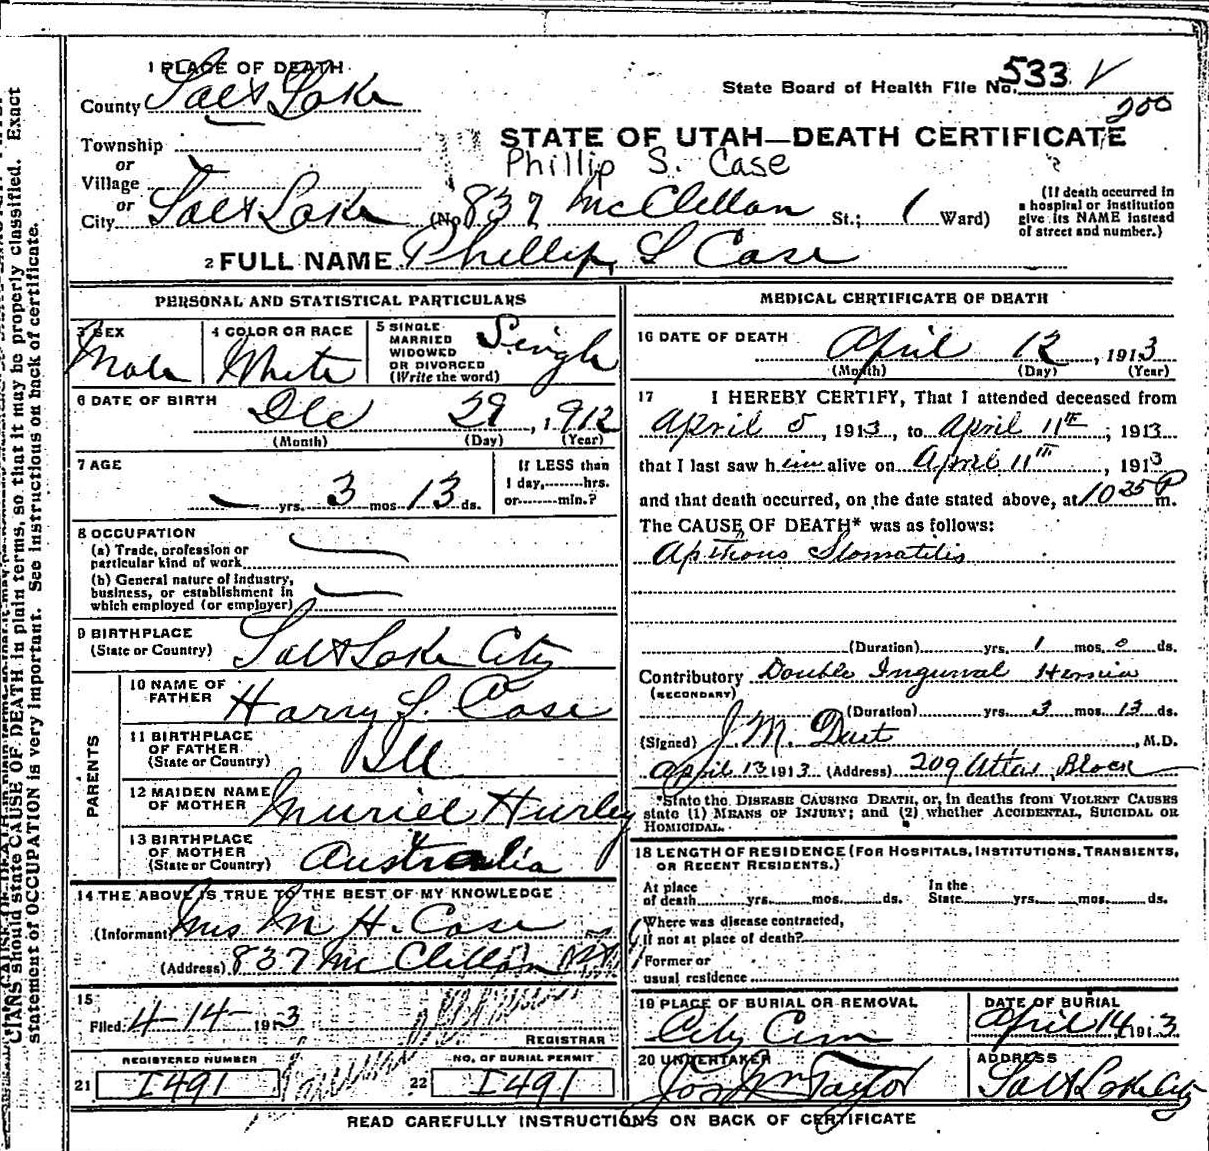 1 PLACE OF DEATH
County Salt Lake
State Board of Health File No. 533
200
Township
STATE OF UTAH—DEATH CERTIFICATE
or
Village
Phillip S. Case
or
City Salt Lake (No. 837 McClellan St.; 1 Ward)
(If death occurred in
a hospital or institution
give its NAME instead
of street and number.)
2 FULL NAME Phillip S Case
PERSONAL AND STATISTICAL PARTICULARS
3 SEX
Male
4 COLOR OR RACE
White
5 SINGLE
MARRIED
WIDOWED
OR DIVORCED
(Write the word)
Single
6 DATE OF BIRTH
Dec 29, 1912
(Month) (Day) (Year)
7 AGE
yrs. 3 mos 13 ds.
If LESS than
1 day, hrs.
or min.?
8 OCCUPATION
(a) Trade, profession or
particular kind of work
(b) General nature of industry,
business, or establishment in
which employed (or employer)
9 BIRTHPLACE
(State or Country)
Salt Lake City
PARENTS
10 NAME OF
FATHER
Harry L. Case
11 BIRTHPLACE
OF FATHER
(State or Country)
Ill
12 MAIDEN NAME
OF MOTHER
Muriel Hurley
13 BIRTHPLACE
OF MOTHER
(State or Country)
Australia
14 THE ABOVE IS TRUE TO THE BEST OF MY KNOWLEDGE
(Informant) Mrs M H. Case
(Address) 837 McClellan
15
Filed 4-14- 1913
REGISTRAR
REGISTERED NUMBER
21 I491
NO. OF BURIAL PERMIT
22 I491
MEDICAL CERTIFICATE OF DEATH
16 DATE OF DEATH
April 12, 1913
(Month) (Day) (Year)
17 I HEREBY CERTIFY, That I attended deceased from
April 5, 1913, to April 11th, 1913
that I last saw him alive on April 11th, 1913
and that death occurred, on the date stated above, at 10 35 P m.
The CAUSE OF DEATH* was as follows:
Apthous Stomatitis
(Duration) yrs. 1 mos. 0 ds.
Contributory Double Inguinal Hernia
(SECONDARY)
(Duration) yrs. 3 mos 13 ds.
(Signed) J. M. Dart, M.D.
April 13 1913 (Address) 209 Atlas Block
*State the DISEASE CAUSING DEATH, or, in deaths from VIOLENT CAUSES
state (1) MEANS OF INJURY; and (2) whether ACCIDENTAL, SUICIDAL OR
HOMICIDAL.
18 LENGTH OF RESIDENCE (FOR HOSPITALS, INSTITUTIONS, TRANSIENTS,
OR RECENT RESIDENTS.)
At place
of death yrs. mos. ds.
In the
State yrs. mos. ds.
Where was disease contracted,
if not at place of death?
Former or
usual residence
19 PLACE OF BURIAL OR REMOVAL
City Cem
DATE OF BURIAL
April 14, 1913
20 UNDERTAKER
Jos Wm Taylor
ADDRESS
Salt Lake City
READ CAREFULLY INSTRUCTIONS ON BACK OF CERTIFICATE
CIANS should state CAUSE OF DEATH in plain terms, so that it may be properly classified. Exact
statement of OCCUPATION is very important. See instructions on back of certificate.